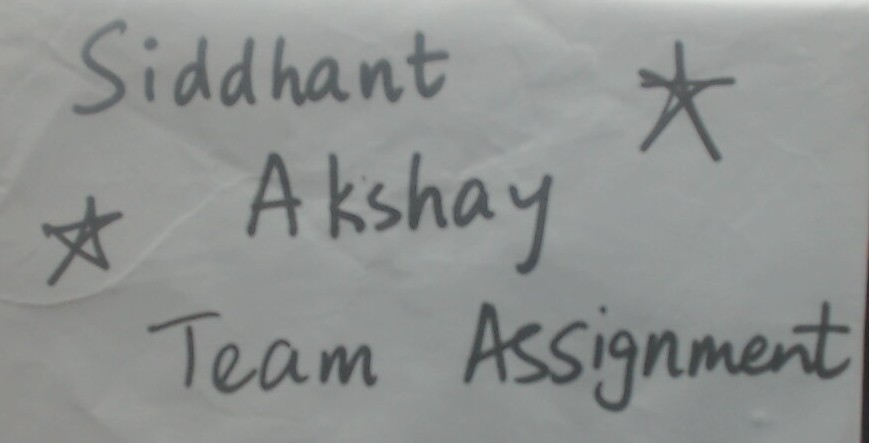 Siddhant
Akshay
Team Assignment